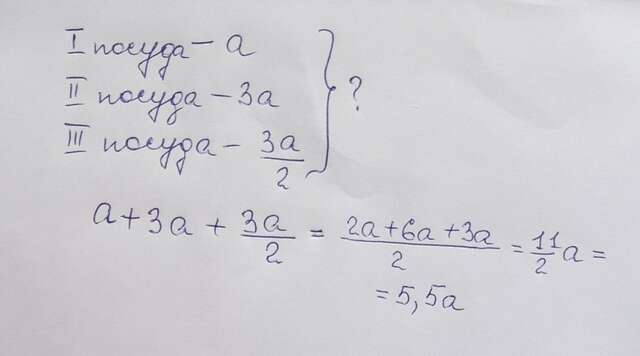 I посуда – a
II посуда – 3a
III посуда – 3a/2
?
a + 3a + 3a/2 = (2a + 6a + 3a)/2 = 11/2 a =
= 5,5a